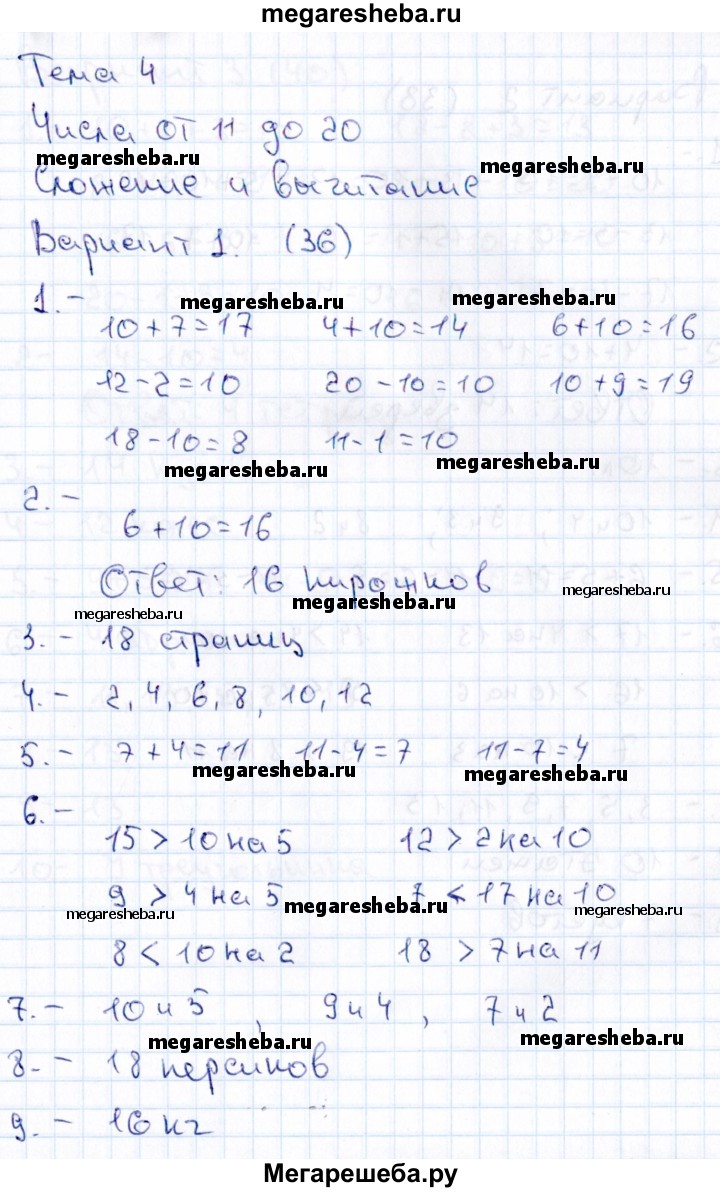 megaresheba.ru
Тема 4
Числа от 11 до 20
megaresheba.ru megaresheba.ru
Сложение и вычитание
Вариант 1. (36)
1. - megaresheba.ru megaresheba.ru
10+7=17 4+10=14 6+10=16
12-2=10 20-10=10 10+9=19
18-10=8 11-1=10
megaresheba.ru megaresheba.ru
2. -
6+10=16
Ответ: 16 пирожков
megaresheba.ru megaresheba.ru megaresheba.ru
3. - 18 страниц
4. - 2, 4, 6, 8, 10, 12
5. - 7+4=11 11-4=7 11-7=4
megaresheba.ru megaresheba.ru
6. -
15 > 10 на 5 12 > 2 на 10
9 > 4 на 5 7 < 17 на 10
megaresheba.ru megaresheba.ru megaresheba.ru
8 < 10 на 2 18 > 7 на 11
7. - 10 и 5, 9 и 4, 7 и 2
megaresheba.ru megaresheba.ru
8. - 18 персиков
9. - 16 кг
Мегарешеба.ру